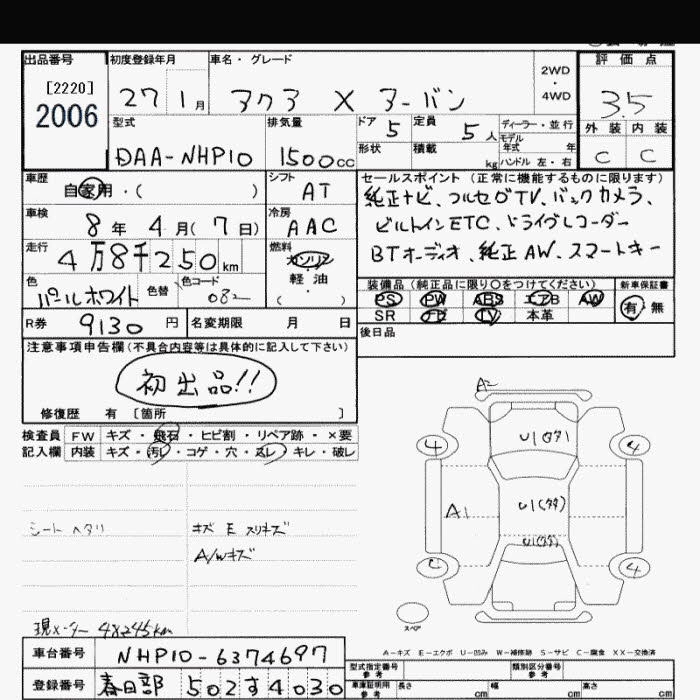 出品番号 初度登録年月 車名・グレード 評価点
[2220]
2006
27 1月 アクア X アーバン 2WD・4WD 3.5
型式 排気量 ドア 5 定員 5人 ディーラー・並行 外装 内装
モデル年式 年
DAA-NHP10 1500cc 形状 積載 kg ハンドル 左・右 C C
車歴 自家用・( ) シフト AT
セールスポイント(正常に機能するものに限ります)
純正ナビ、フルセグTV、バックカメラ、
ビルトインETC、ドライブレコーダー
BTオーディオ、純正AW、スマートキー
車検 8年 4月(7日) 冷房 AAC
走行 4万8千250km 燃料 ガソリン 軽・油 ( )
色 パールホワイト 色替 色カラーNo 082
装備品(純正品に限り○をつけてください) 新車保証書
PS PW ABS エアB AW 有・無
SR TV 本革
R券 9130円 名変期限 月 日
後日品
注意事項申告欄(不具合内容等は具体的に記入して下さい)
初出品!!
修復歴 有 [箇所 ]
検査員 FW キズ・飛石・ヒビ割・リペア跡・×要
記入欄 内装 キズ・汚レ・コゲ・穴・スレ・キレ・破レ
A2
U1(タタ)
4 4
A1
U1(タタ)
U1(タタ)
シートヘタリ キズ E スリキズ
A/Wキズ
4
スペア
現メーター 48245km
A-キズ E-エクボ U-凹み W-補修跡 S-サビ C-腐食 XX-交換済
車台番号 NHP10-6374697
型式指定番号 参考 類別区分番号 参考
登録番号 春日部 502 す 4030
車庫証明用 参考 長さ cm 幅 cm 高さ cm